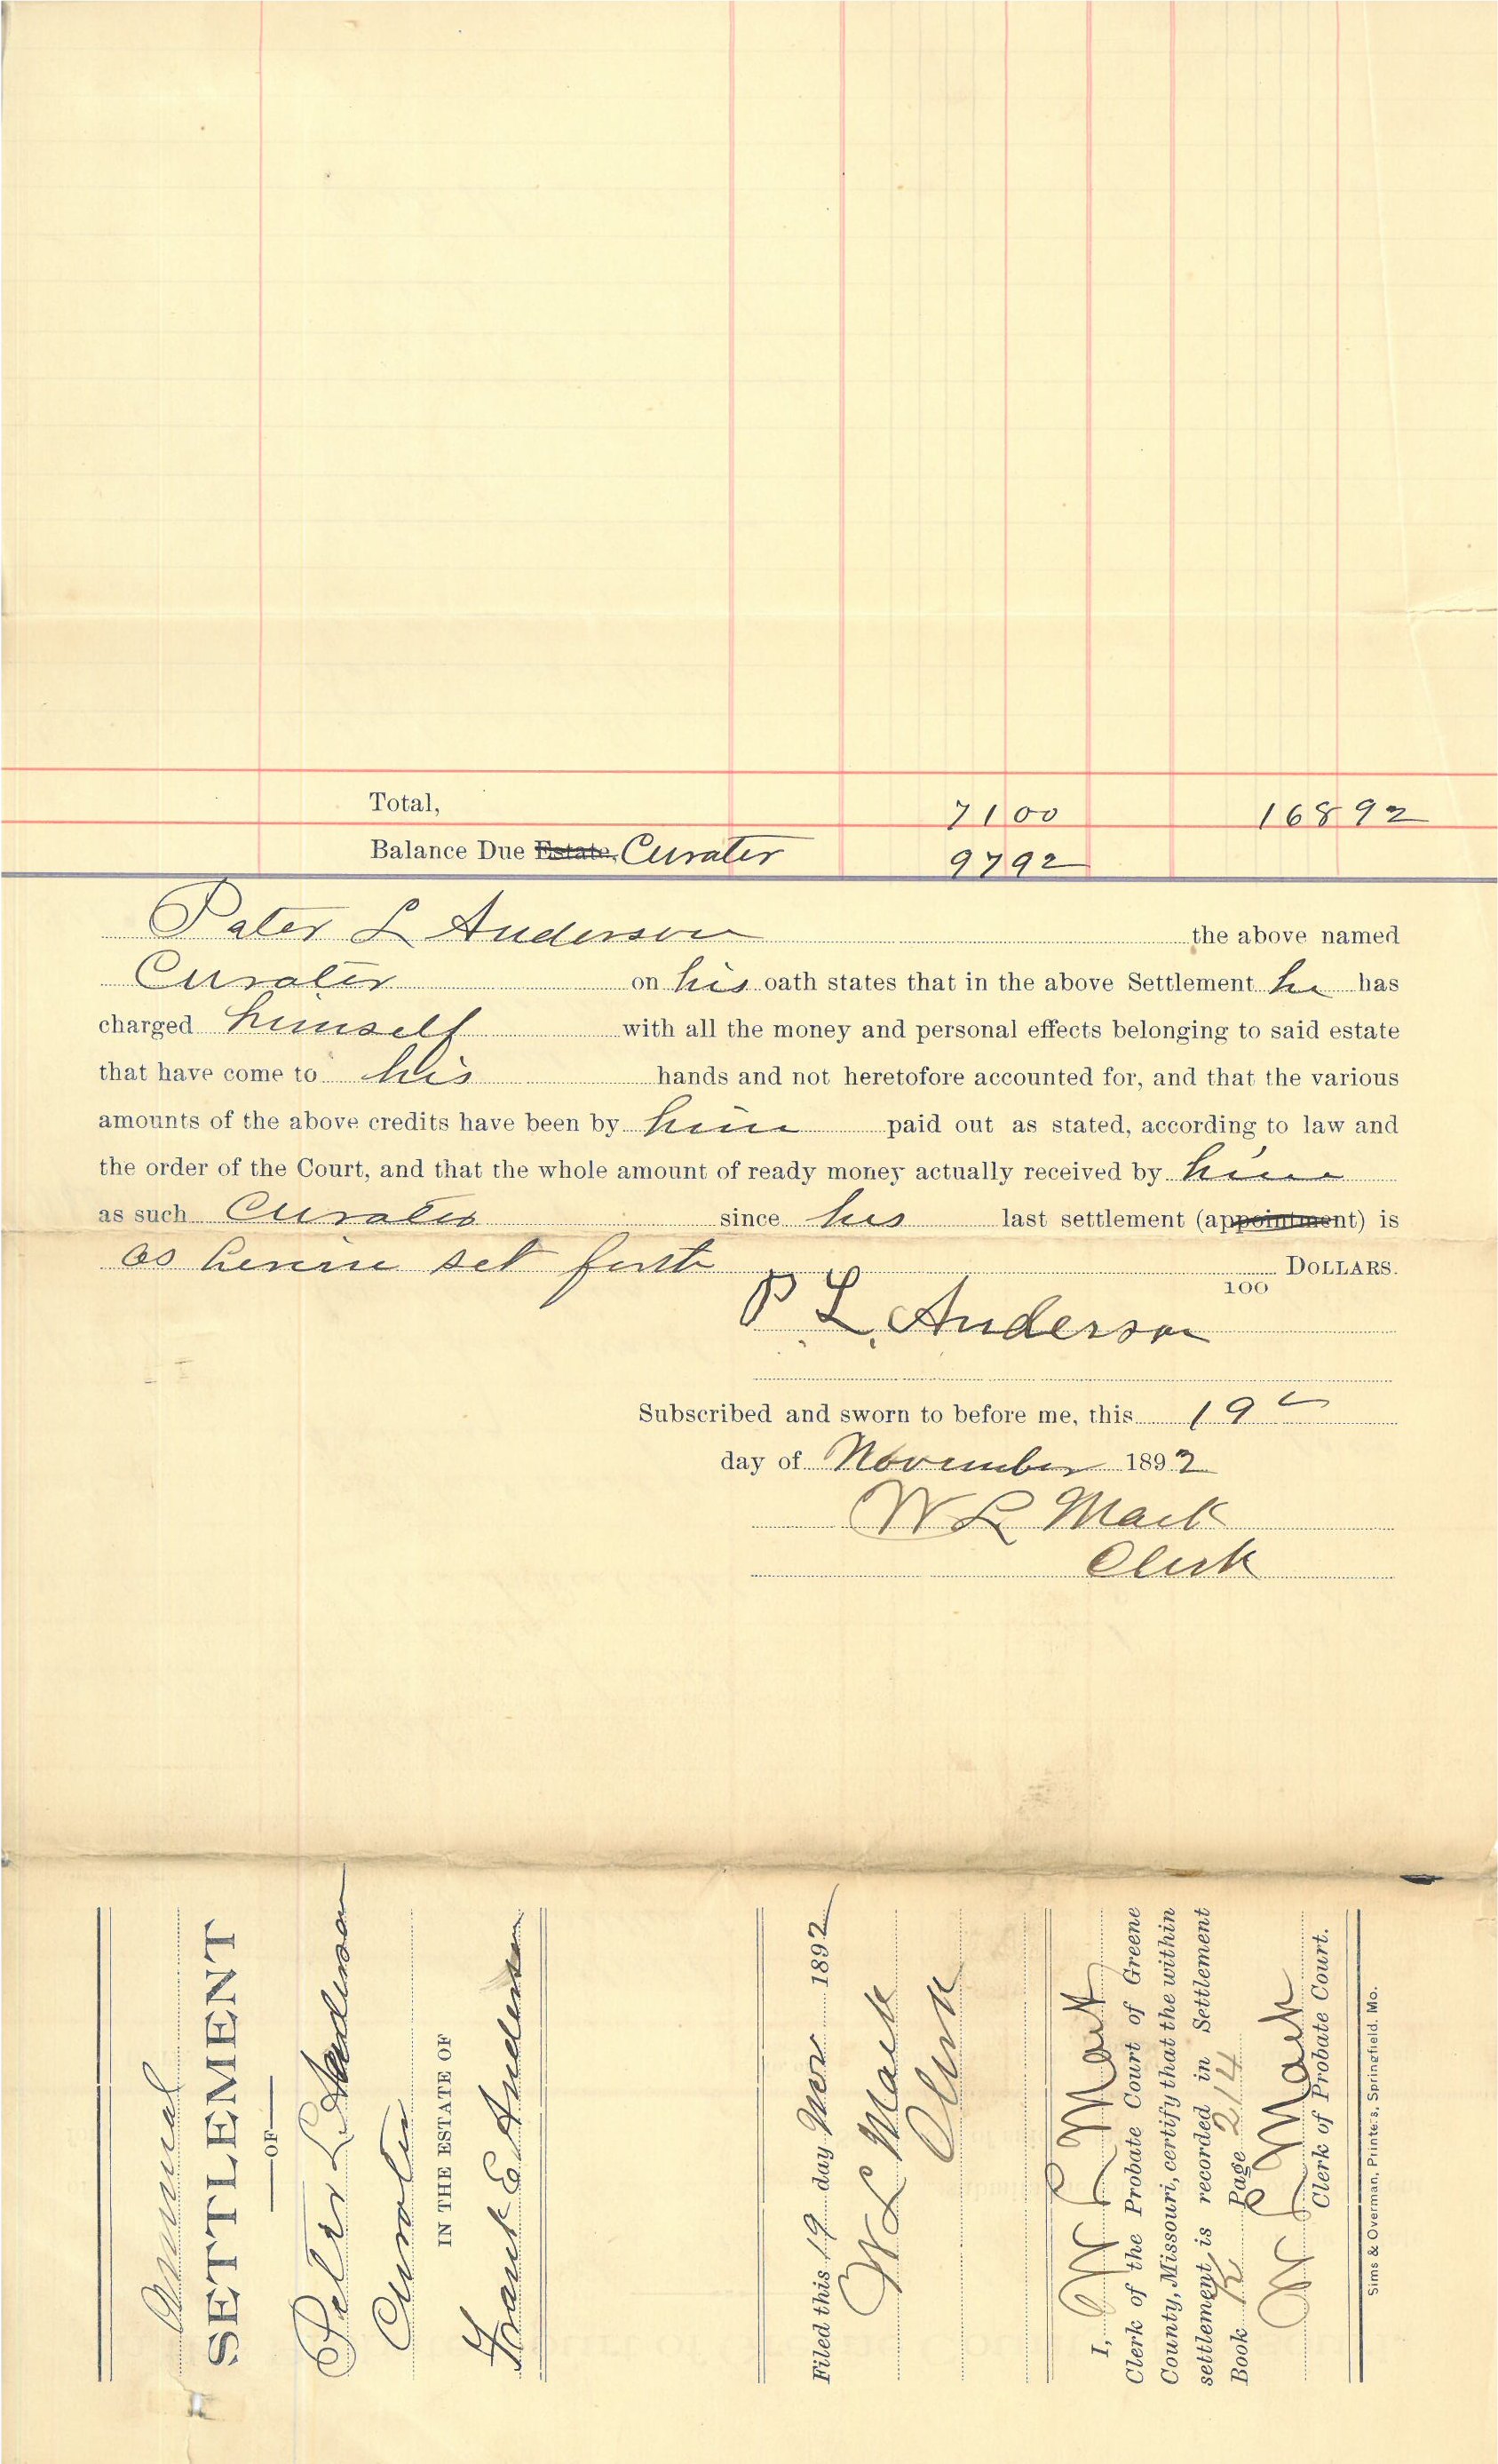 Total, 71 00 168 92
Balance Due Estate, Curater 97 92
Pater L Anderson the above named
Curater on his oath states that in the above Settlement he has
charged himself with all the money and personal effects belonging to said estate
that have come to his hands and not heretofore accounted for, and that the various
amounts of the above credits have been by him paid out as stated, according to law and
the order of the Court, and that the whole amount of ready money actually received by him
as such Curater since his last settlement (appointment) is
as herein set forth DOLLARS.
100
P L. Anderson
Subscribed and sworn to before me, this 19
day of November 1892
W L Mack
Clerk
Annual
SETTLEMENT
OF
Peter L Anderson
Curater
IN THE ESTATE OF
Frank E Anderson
Filed this 19 day Nov 1892
W L Mack
Clerk
I, W L Mack
Clerk of the Probate Court of Greene
County, Missouri, certify that the within
settlement is recorded in Settlement
Book K Page 214
W L Mack
Clerk of Probate Court.
Sims & Overman, Printers, Springfield, Mo.